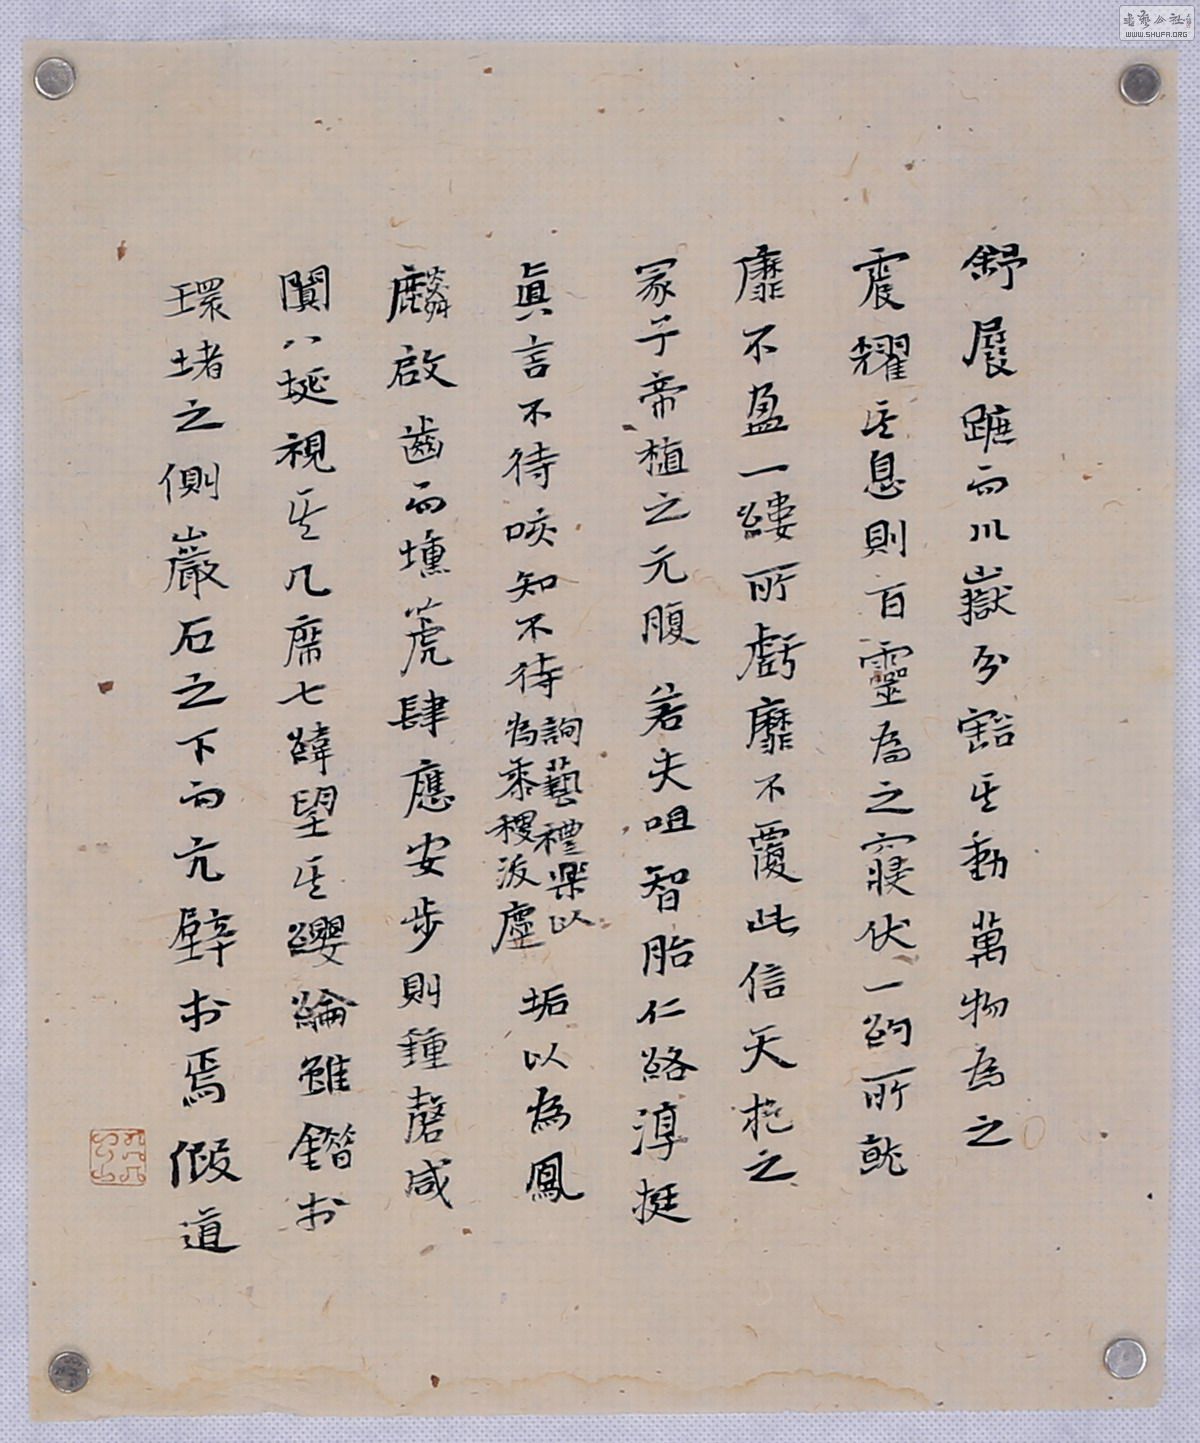 舒展蹠而川嶽分豁其動萬物為之
震耀其息則百靈為之寢伏一韵所
靡不盈一縷所虧靡不覆此信天挖之
冢子帝植之元腹若夫咀智胎仁絡淳挺
真言不待咳知不待詢藝禮樂以為黍稷汳塵垢以為鳳
麟啟齒而壎箎肆應安步則鍾磬咸
闐八埏視其几席七緯望其纓綸雖鐕於
環堵之側巖石之下而亢壁於焉假道
WWW.SHUFA.ORG